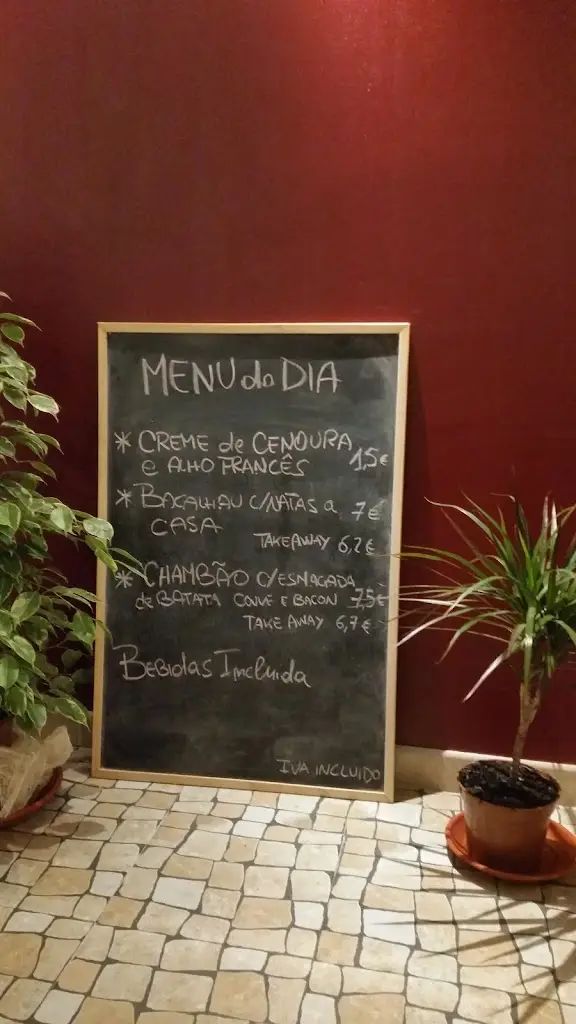 MENU do DIA
* CREME de CENOURA
e ALHO FRANCÊS 1,5€
* BACALHAU C/NATAS a 7€
CASA
TAKEAWAY 6,2€
* CHAMBÃO C/ESMAGADA
de BATATA COUVE E BACON 7,5€
TAKE AWAY 6,7€
BEBIDAS Incluida
IVA INCLUIDO